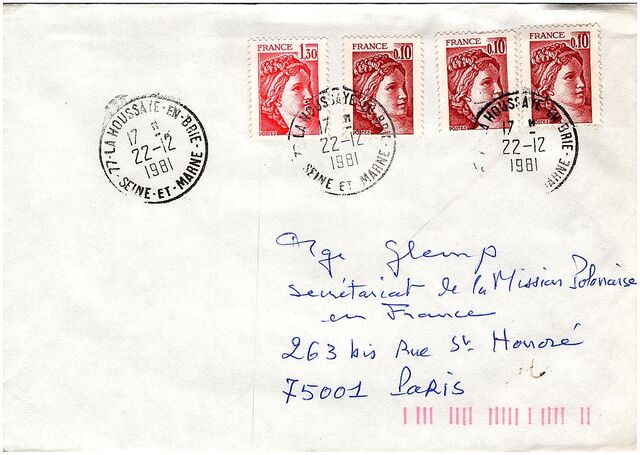 FRANCE 1,30
FRANCE 0,10
FRANCE 0,10
FRANCE 0,10
POSTES
77-LA HOUSSAYE-EN-BRIE
17 H
22-12
1981
SEINE-ET-MARNE
LA HOUSSAYE-EN-BRIE
17 H
22-12
1981
SEINE ET MARNE
LA HOUSSAYE-EN-BRIE
17 H
22-12
1981
Mgr Glemp
secrétariat de la Mission Polonaise
en France
263 bis Rue St. Honoré
75001 Paris